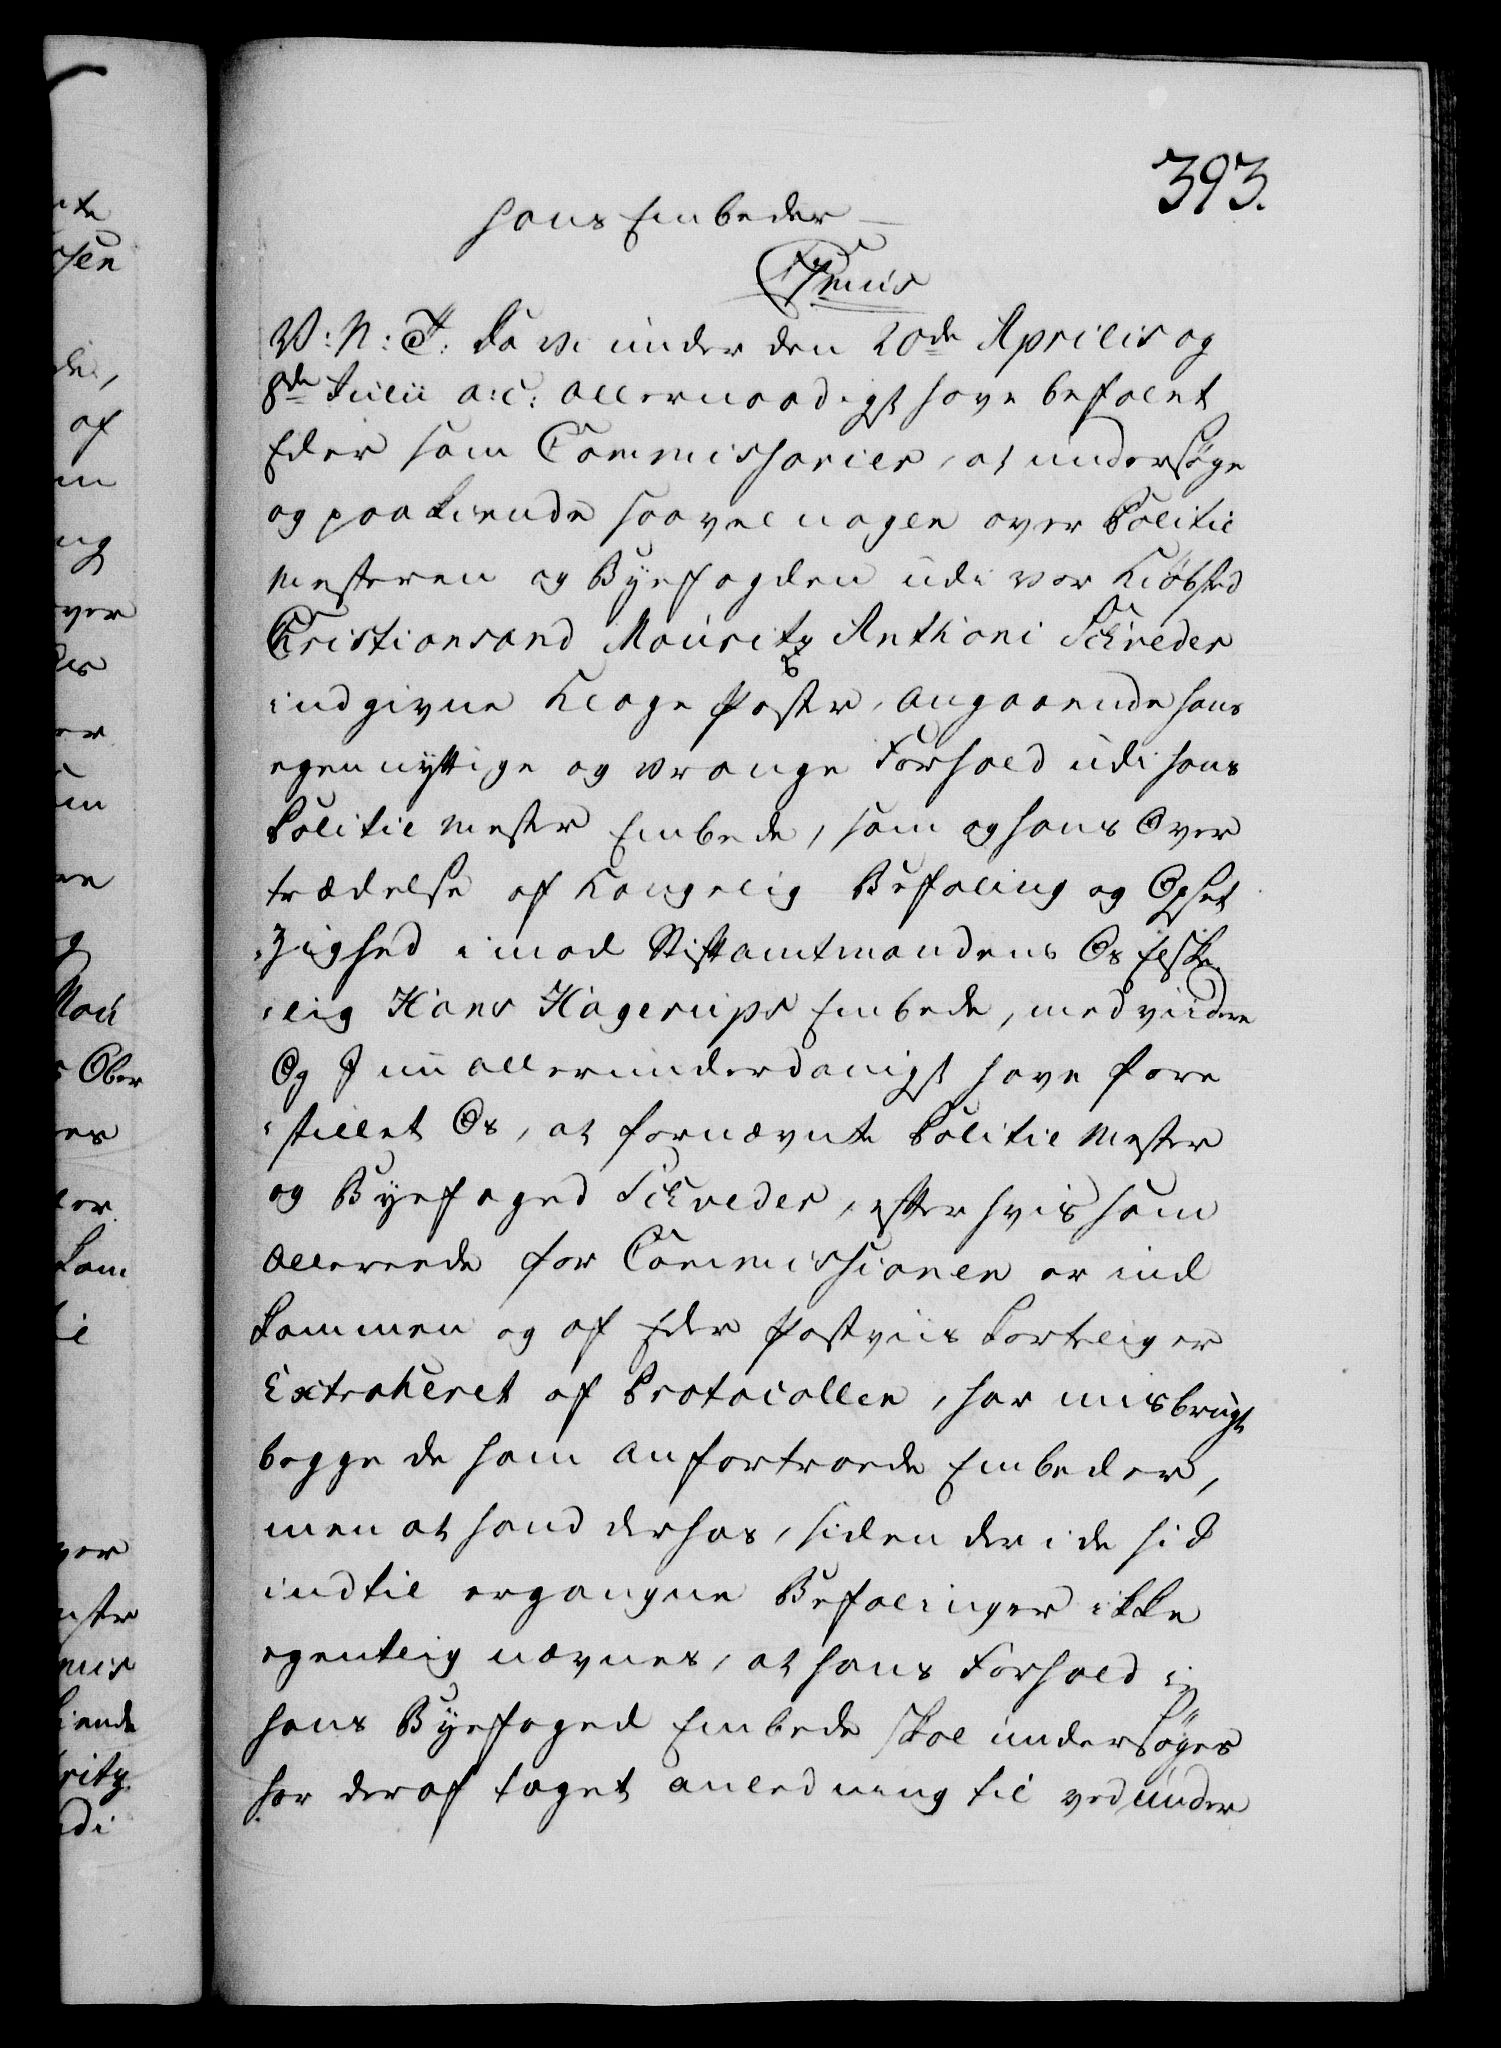 393.
hans Embeder
Chur
W: N: T: Da Vi under den 20de Aprilis og
8de Julii a: c: allernaadigst have befalet
Eder som Commissarier, at undersøge
og paakiende saavel nogle over Politie
Mesteren og Byefogden udi vor Kiøbsted
Christiansand Mauritz Anthoni Schreder
indgivne Klage Poster, angaaende hans
egennyttige og vrange Forhold udi hans
Politie Mester Embede, som og hans Over
trædelse af Kongelig Befaling og Opset
zighed imod Stiftamtmandens Os Elske
lig Hans Hagerups Embede, med videre
Og I nu allerunderdanigst have fore
stillet Os, at fornævnte Politie Mester
og Byefoged Schreder, efter hvis som
allereede for Commissionen er ind
kommen og af Eder Postviis kortelig er
Extraheret af Protocollen, har misbrugt
begge de ham anfortroede Embeder,
men at hand derhos, siden der i de hid
indtil ergangne Befalinger ikke
egentlig nævnes, at hans Forhold i
hans Byefoged Embede skal undersøges
har deraf taget anledning til ved under